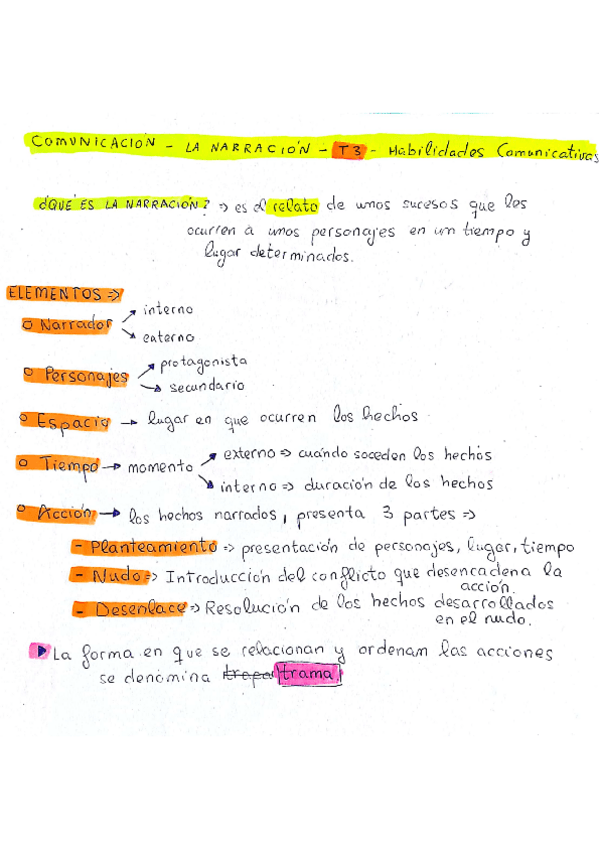 COMUNICACIÓN - LA NARRACIÓN - T3 - Habilidades Comunicativas
¿QUÉ ES LA NARRACIÓN? => es el relato de unos sucesos que les
ocurren a unos personajes en un tiempo y
lugar determinados.
ELEMENTOS =>
o Narrador
interno
externo
o Personajes
protagonista
secundario
o Espacio → lugar en que ocurren los hechos
o Tiempo → momento
externo => cuándo soceden los hechos
interno => duración de los hechos
o Acción → los hechos narrados, presenta 3 partes =>
- Planteamiento => presentación de personajes, lugar, tiempo
- Nudo => Introducción del conflicto que desencadena la
acción.
- Desenlace => Resolución de los hechos desarrollados
en el nudo.
La forma en que se relacionan y ordenan las acciones
se denomina trapa trama.